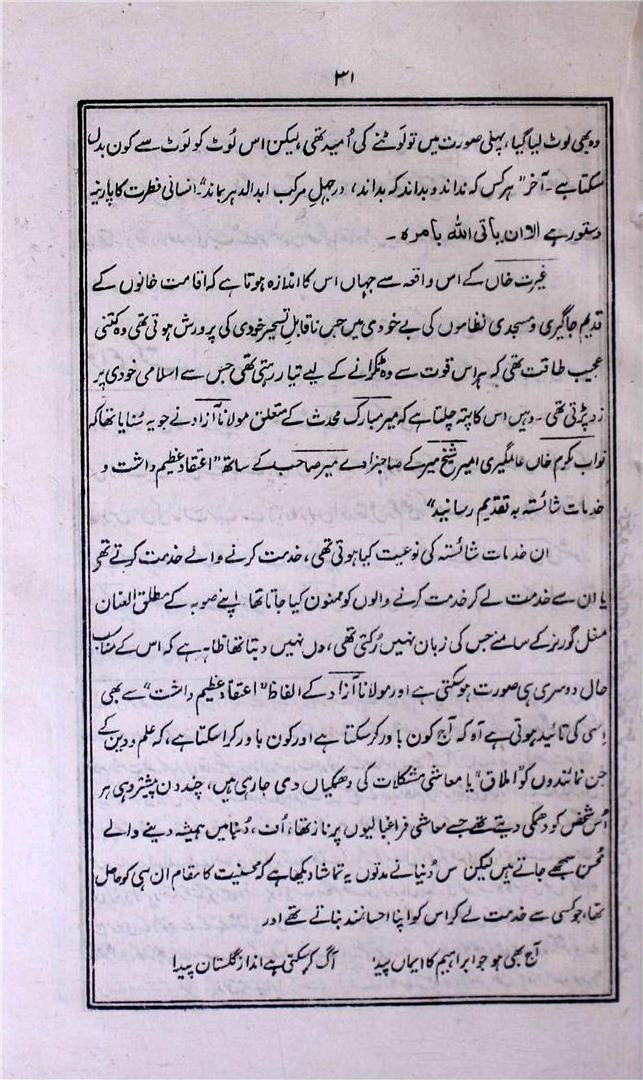 ۳۱
وہ بھی لوٹ لیا گیا، پہلی صورت میں تو لَوٹنے کی اُمید تھی، لیکن اس لُوٹ کو لَوٹ سے کون بدل
سکتا ہے۔ آخر "ہر کس کہ نداند و بداند کہ بداند، در جہلِ مرکب ابدالدہر بماند" انسانی فطرت کا پارینہ
دستور ہے الا ان یاتی اللہ بامرہ ۔
غیرت خاں کے اس واقعہ سے جہاں اس کا اندازہ ہوتا ہے کہ اقامت خانوں کے
قدیم جاگیری و مسجدی نظاموں کی بے خودی میں جس ناقابلِ تسخیر خودی کی پرورش ہوتی تھی وہ کتنی
عجیب طاقت تھی کہ ہر اس قوت سے وہ ٹکرانے کے لیے تیار رہتی تھی جس سے اسلامی خودی پر
زد پڑتی تھی۔ وہیں اس کا پتہ چلتا ہے کہ میر مبارک محدث کے متعلق مولانا آزاد نے جو یہ سُنایا تھا کہ
نواب مکرم خاں عالمگیری امیر شیخ میر کے صاحبزادے میر صاحب کے ساتھ "اعتقاد عظیم داشت و
خدمات شائستہ بہ تقدیم رسانید"
ان خدمات شائستہ کی نوعیت کیا ہوتی تھی، خدمت کرنے والے خدمت کرتے تھے
یا ان سے خدمت لے کر خدمت کرنے والوں کو ممنون کیا جاتا تھا اپنے صوبہ کے مطلق العنان
مغل گورنر کے سامنے جس کی زبان نہیں رُکتی تھی، دل نہیں دبتا تھا ظاہر ہے کہ اس کے مناسب
حال دوسری ہی صورت ہو سکتی ہے اور مولانا آزاد کے الفاظ "اعتقاد عظیم داشت" سے بھی
اِسی کی تائید ہوتی ہے آہ کہ آج کون باور کر سکتا ہے اور کون باور کرا سکتا ہے، کہ علم و دین کے
جن نمائندوں کو "املاق" یا معاشی مشکلات کی دھمکیاں دی جا رہی ہیں، چند دن پیشتر وہی ہر
اُس شخص کو دھمکی دیتے تھے جسے معاشی فراغبالیوں پر ناز تھا، اُف، دُنیا میں ہمیشہ دینے والے
محسن سمجھے جاتے ہیں لیکن اس دُنیا نے مدتوں یہ تماشا دیکھا ہے کہ محسنیت کا مقام ان ہی کو حاصل
تھا، جو کسی سے خدمت لے کر اس کو اپنا احسانمند بناتے تھے اور
آج بھی ہو جو ابراہیم کا ایماں پیدا آگ کر سکتی ہے انداز گلستان پیدا